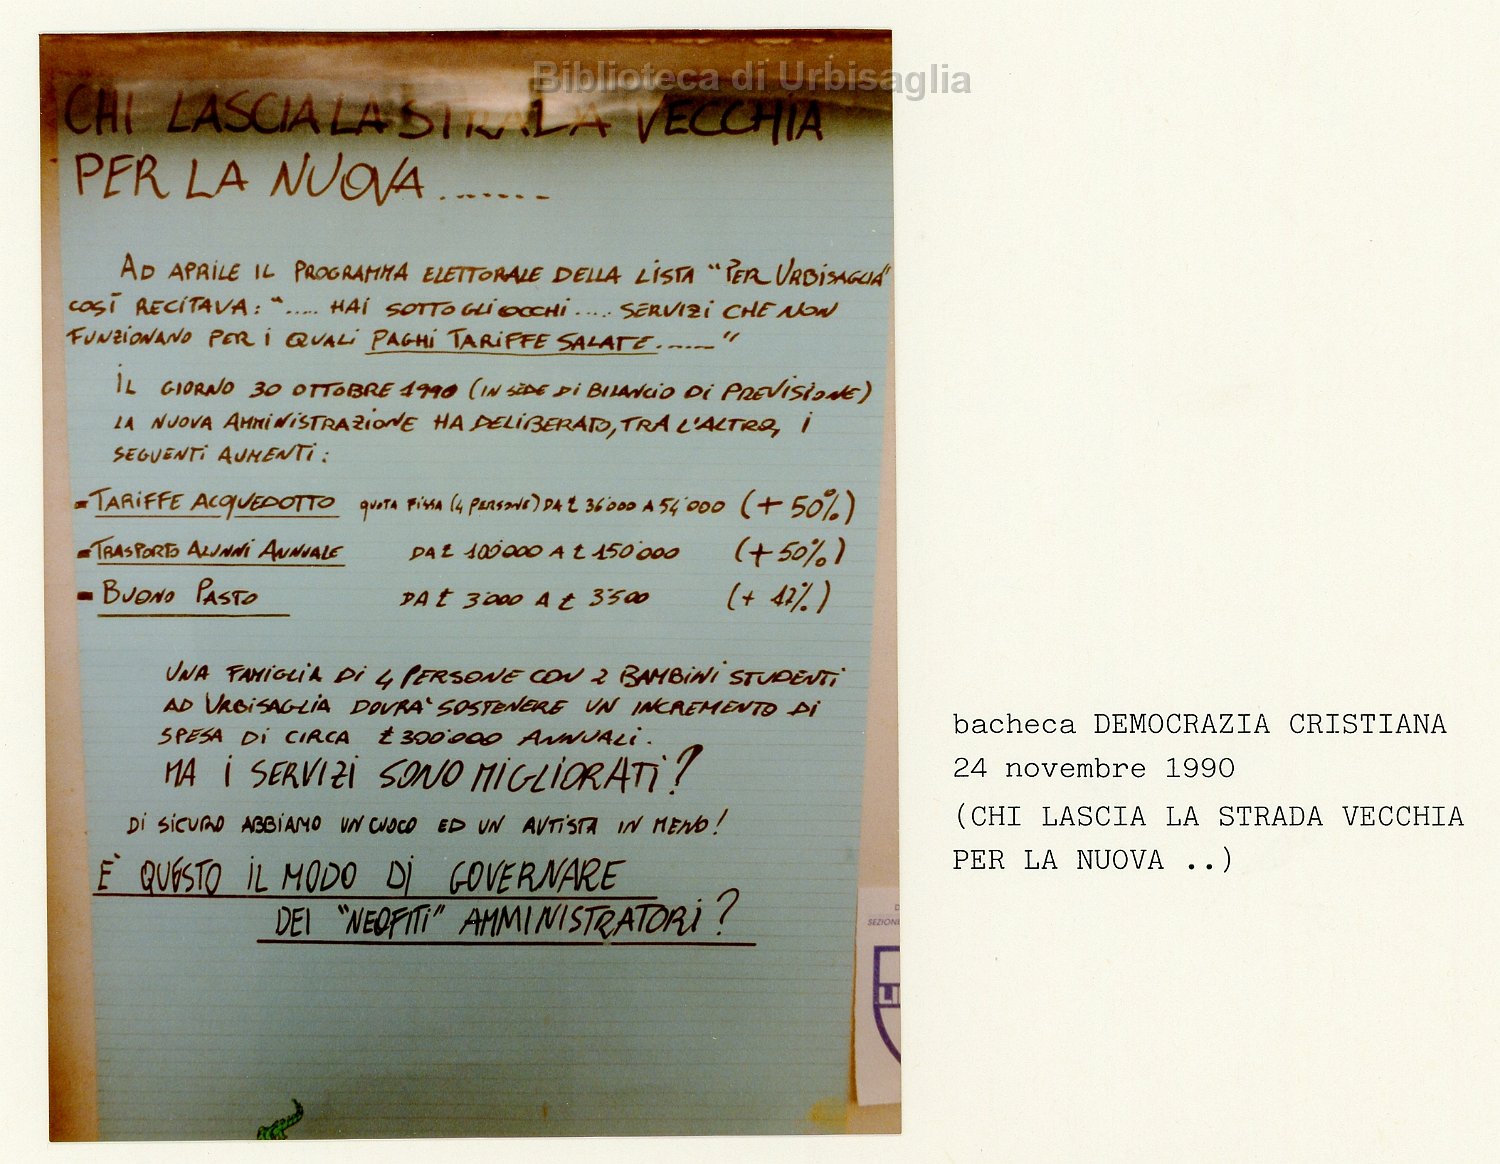 Biblioteca di Urbisaglia
CHI LASCIA LA STRADA VECCHIA
PER LA NUOVA.......
AD APRILE IL PROGRAMMA ELETTORALE DELLA LISTA "PER URBISAGLIA"
COSÌ RECITAVA: "..... HAI SOTTO GLI OCCHI..... SERVIZI CHE NON
FUNZIONANO PER I QUALI PAGHI TARIFFE SALATE......"
IL GIORNO 30 OTTOBRE 1990 (IN SEDE DI BILANCIO DI PREVISIONE)
LA NUOVA AMMINISTRAZIONE HA DELIBERATO, TRA L'ALTRO, I
SEGUENTI AUMENTI:
- TARIFFE ACQUEDOTTO quota fissa (4 persone) DA £ 36'000 A 54'000 (+ 50%)
- TRASPORTO ALUNNI ANNUALE DA £ 100'000 A £ 150'000 (+ 50%)
- BUONO PASTO DA £ 3'000 A £ 3'500 (+ 17%)
UNA FAMIGLIA DI 4 PERSONE CON 2 BAMBINI STUDENTI
AD URBISAGLIA DOVRA' SOSTENERE UN INCREMENTO DI
SPESA DI CIRCA £ 300'000 ANNUALI.
MA I SERVIZI SONO MIGLIORATI?
DI SICURO ABBIAMO UN CUOCO ED UN AUTISTA IN MENO!
E' QUESTO IL MODO DI GOVERNARE
DEI "NEOFITI" AMMINISTRATORI?
SEZIONE
LI
bacheca DEMOCRAZIA CRISTIANA
24 novembre 1990
(CHI LASCIA LA STRADA VECCHIA
PER LA NUOVA ..)